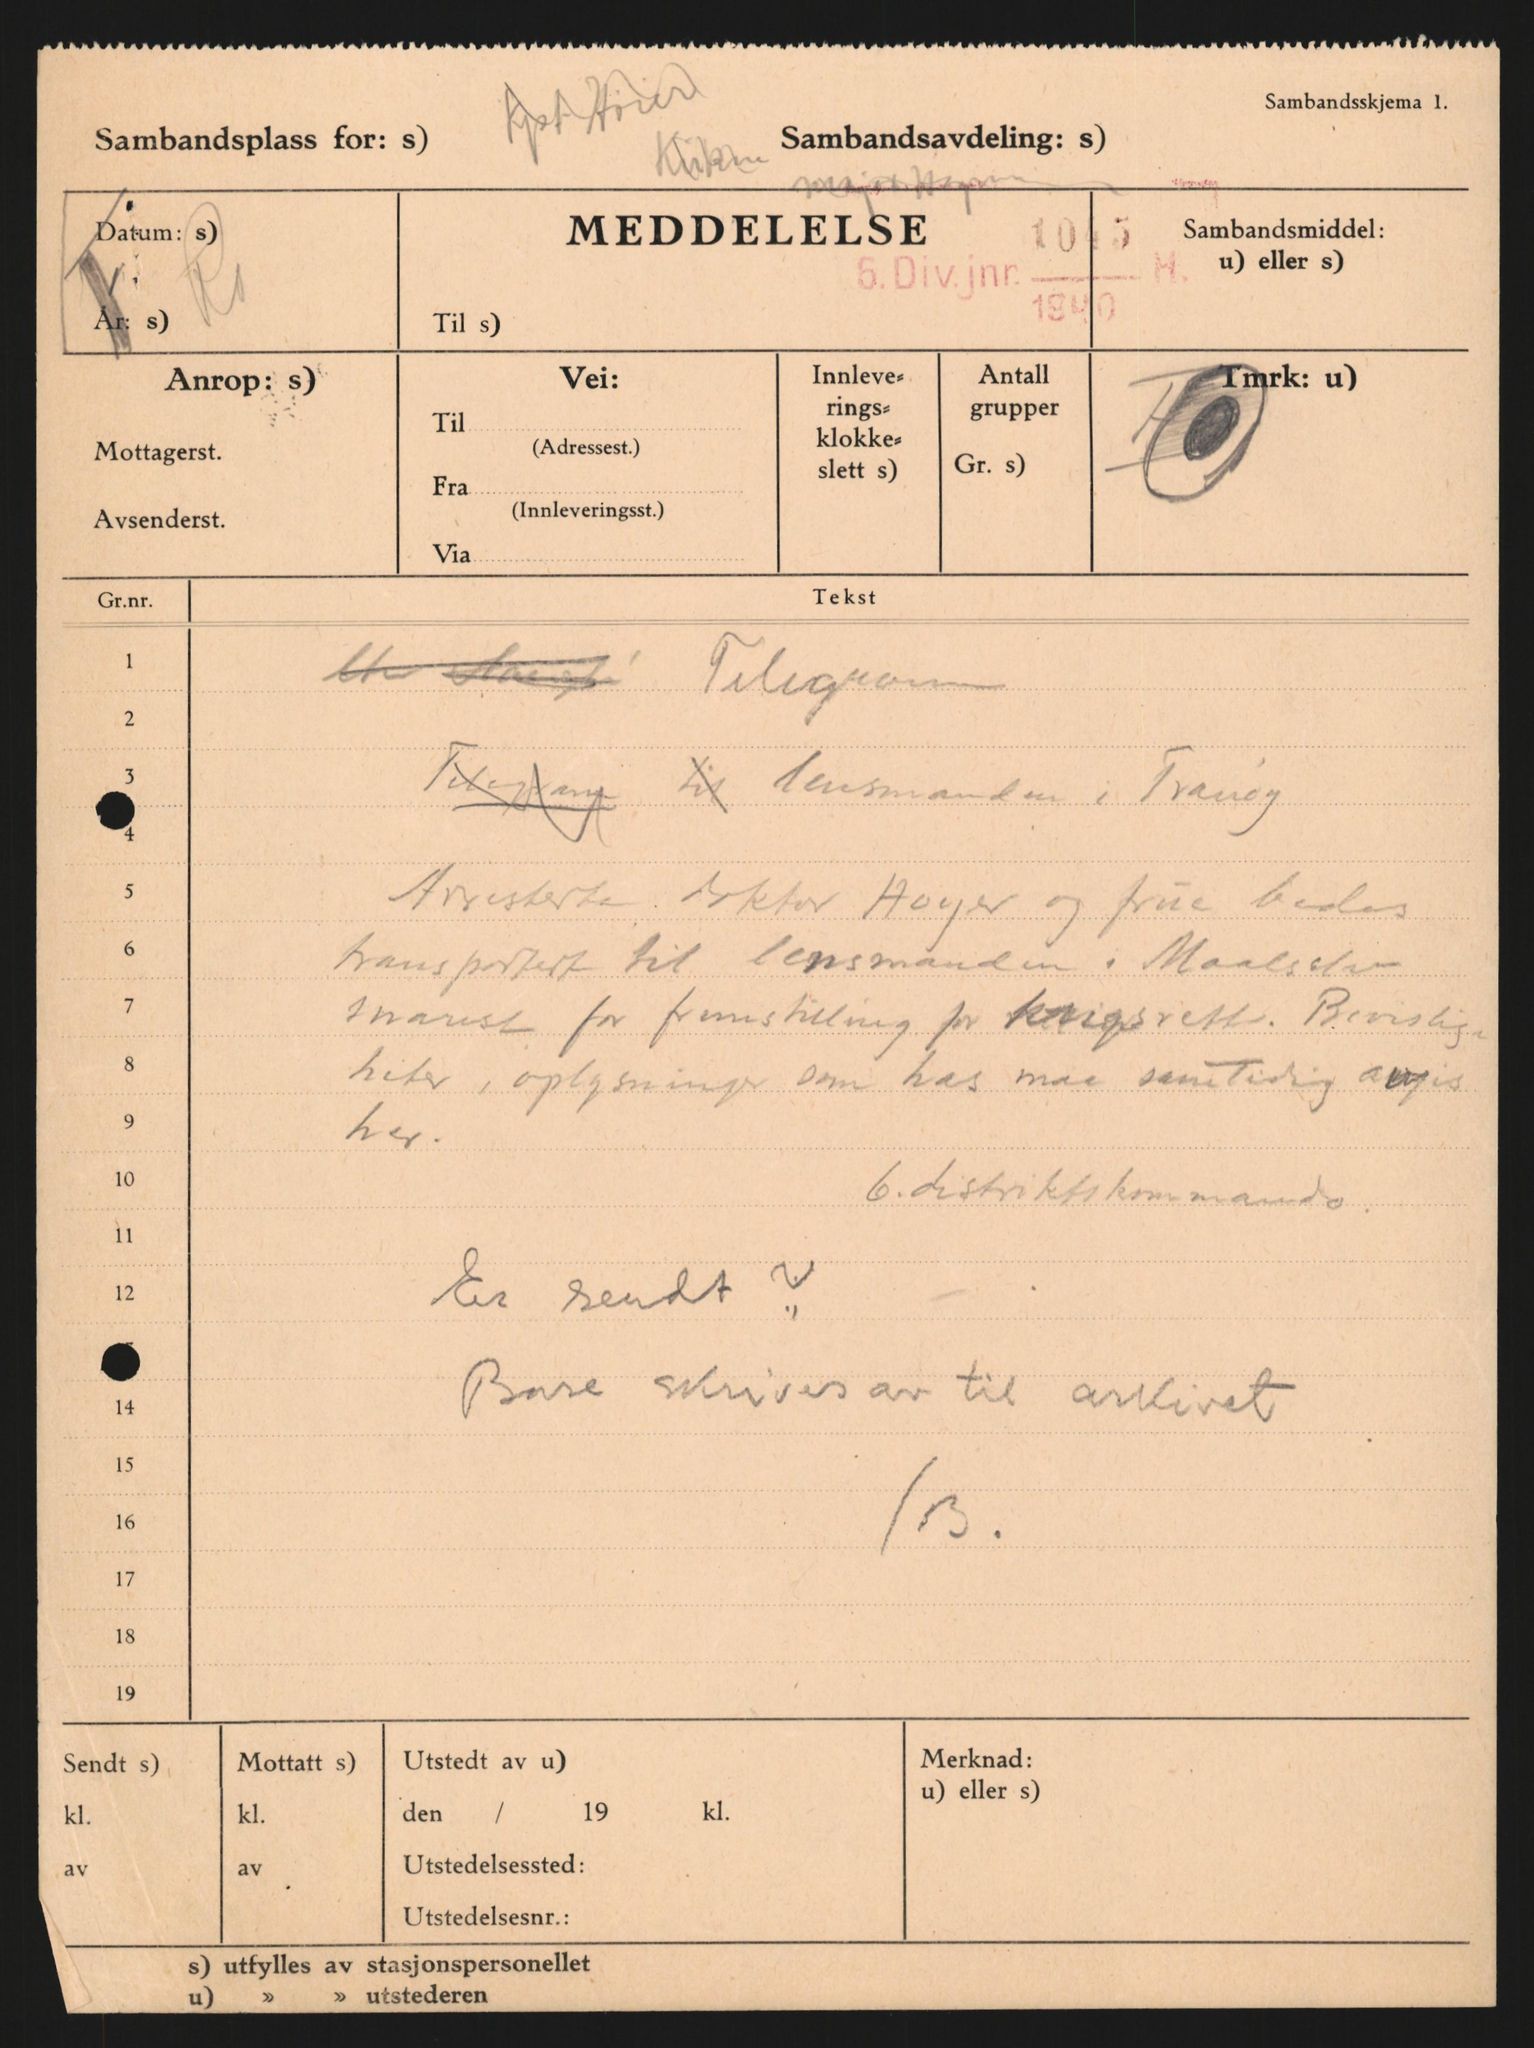 Sambandsskjema 1.
Kpt. Høier
Sambandsplass for: s)
Sambandsavdeling: s)
Datum: s)
MEDDELELSE
1045
Sambandsmiddel:
6. Div. jnr. H.
u) eller s)
1940
År: s)
Til s)
Anrop: s)
Vei:
Innleve=
rings=
klokke=
slett s)
Antall
grupper
Gr. s)
Tmrk: u)
Til
(Adressest.)
Mottagerst.
Fra
(Innleveringsst.)
Avsenderst.
Via
Gr.nr.
Tekst
1 Telegram
2
3 Telegram til lensmanden i Tranøy
4
5 Arresterte doktor Hoyer og frue bedes
6 transportert til lensmanden i Maalselv
7 snarest for fremstilling for krigsrett. Bevislig-
8 heter, oplysninger som has maa samtidig avgis
9 her.
10 6. distriktskommando.
11
12 Er sendt?
14 Bare skrives av til arkivet
15
16 /B.
17
18
19
Sendt s)
Mottatt s)
Utstedt av u)
Merknad:
u) eller s)
kl.
kl.
den / 19 kl.
av
av
Utstedelsessted:
Utstedelsesnr.:
s) utfylles av stasjonspersonellet
u) » » utstederen